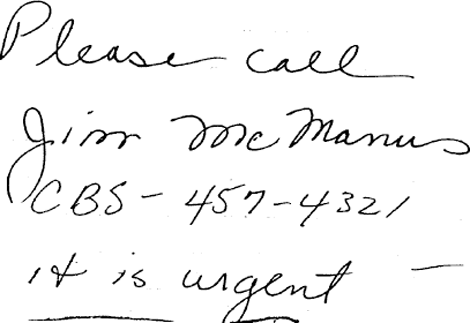 Please call
Jim McManus
CBS - 457-4321
it is urgent -